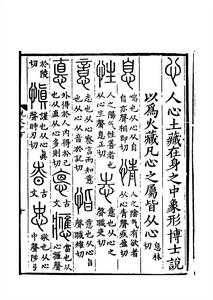 心 人心土藏在身之中象形博士說
以爲火藏凡心之屬皆从心息林切
息 喘也从心从自自亦聲相即切 情 人之陰气有欲者从心青聲疾盈切
性 人之陽气性善者也从心生聲息正切 志 意也从心之聲職吏切
意 志也从心察言而知意也从心从音於記切 恉 意也从心旨聲職雉切
悳 外得於人内得於己也从直从心多則切 古文 應 當也从心䧹聲
於陵切 愼 謹也从心眞聲時刃切 昚 古文 忠 敬也从心中聲陟弓切